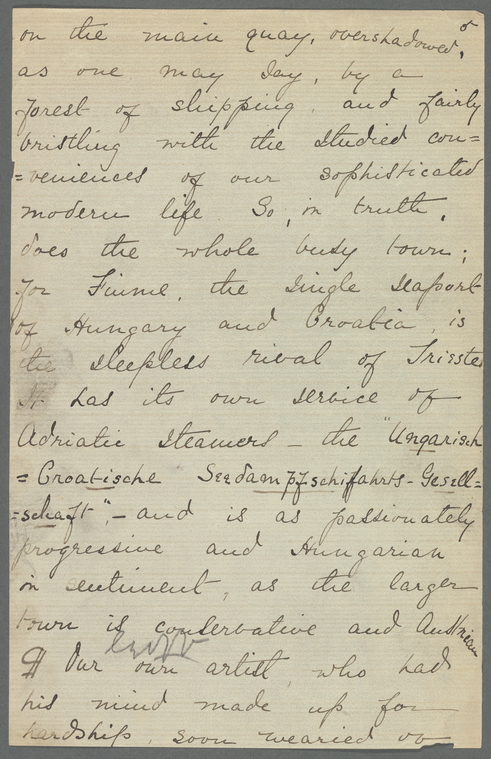 on the main quay, overshadowed,
as one may say, by a
forest of shipping, and fairly
bristling with the studied con=
=veniences of our sophisticated
modern life. So, in truth,
does the whole busy town;
for Fiume, the single seaport
of Hungary and Croatia, is
the sleepless rival of Trieste.
It has its own service of
Adriatic steamers – the "Ungarisch
=Croatische Seedampfschiffahrts-Gesell=
=schaft", – and is as passionately
progressive and Hungarian
in sentiment, as the larger
town is conservative and Austrian.
¶ Our own artist, who had
his mind made up for
hardship, soon wearied of